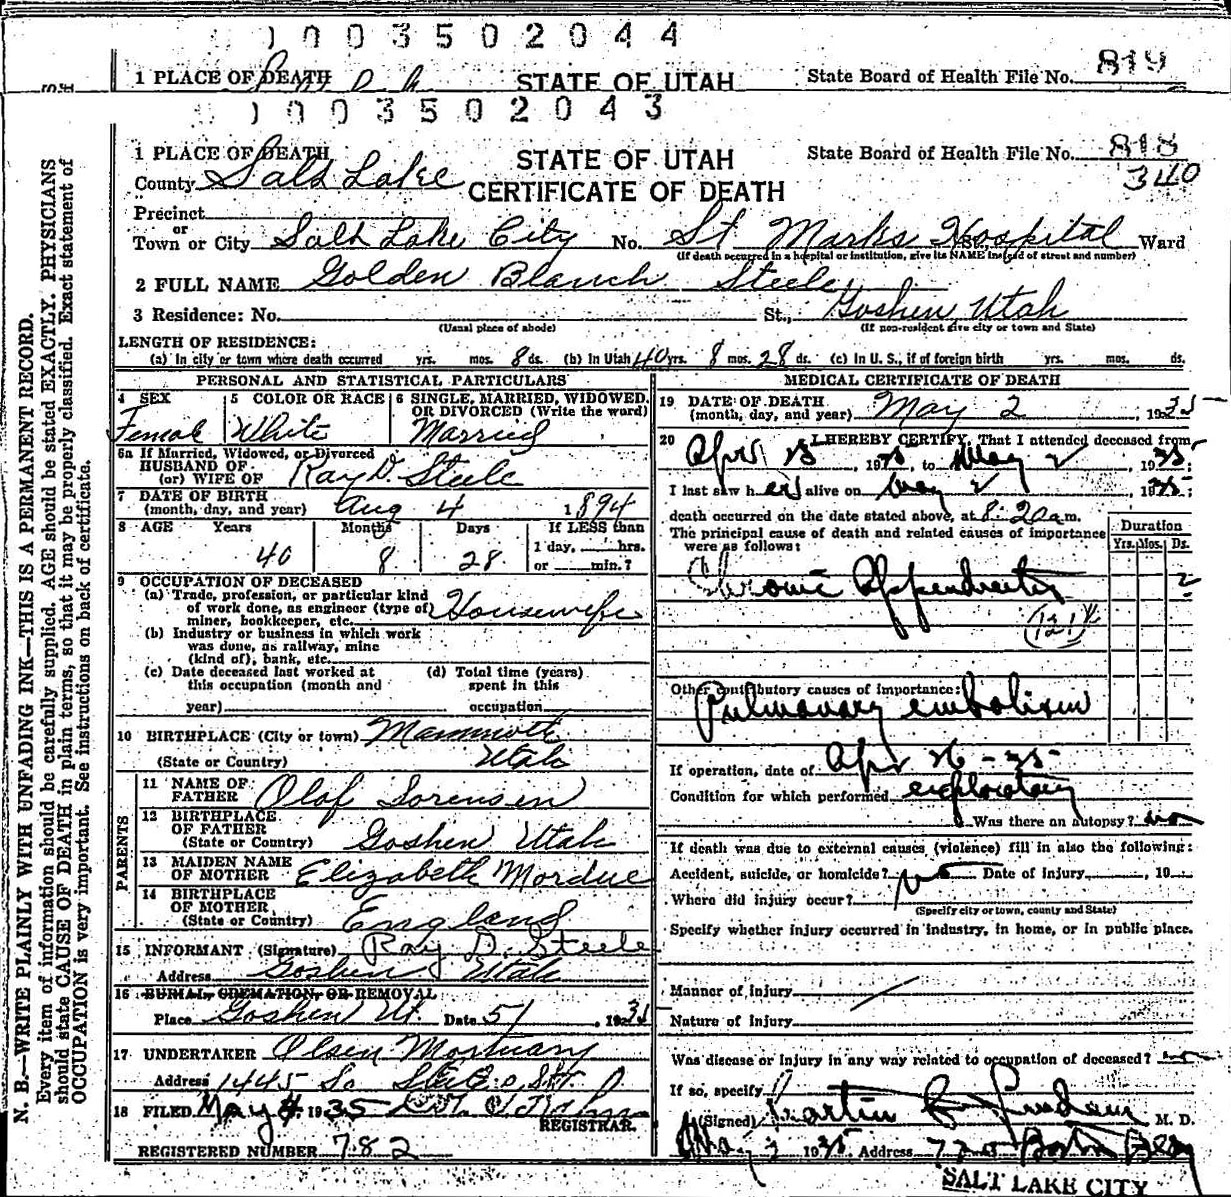 0 0 3 5 0 2 0 4 4
1 PLACE OF DEATH STATE OF UTAH State Board of Health File No. 819
0 0 3 5 0 2 0 4 3
1 PLACE OF DEATH STATE OF UTAH State Board of Health File No. 818
County Salt Lake CERTIFICATE OF DEATH 340
Precinct
or
Town or City Salt Lake City No. St Marks Hospital Ward
(If death occurred in a hospital or institution, give its NAME instead of street and number)
2 FULL NAME Golden Blanch Steele
3 Residence: No. St., Goshen Utah
(Usual place of abode) (If non-resident give city or town and State)
LENGTH OF RESIDENCE:
(a) In city or town where death occurred yrs. mos. 8 ds. (b) In Utah 40 yrs. 8 mos. 28 ds. (c) In U. S., if of foreign birth yrs. mos. ds.
PERSONAL AND STATISTICAL PARTICULARS
4 SEX 5 COLOR OR RACE 6 SINGLE, MARRIED, WIDOWED, OR DIVORCED (Write the word)
Female White Married
6a If Married, Widowed, or Divorced
HUSBAND OF
(or) WIFE OF Ray D. Steele
7 DATE OF BIRTH
(month, day, and year) Aug 4 1894
8 AGE Years Months Days If LESS than
40 8 28 1 day, hrs.
or min.?
9 OCCUPATION OF DECEASED
(a) Trade, profession, or particular kind
of work done, as engineer (type of) Housewife
miner, bookkeeper, etc.
(b) Industry or business in which work
was done, as railway, mine
(kind of), bank, etc.
(c) Date deceased last worked at (d) Total time (years)
this occupation (month and spent in this
year) occupation
10 BIRTHPLACE (City or town) Mammoth
(State or Country) Utah
PARENTS
11 NAME OF
FATHER Olof Sorensen
12 BIRTHPLACE
OF FATHER
(State or Country) Goshen Utah
13 MAIDEN NAME
OF MOTHER Elizabeth Mordue
14 BIRTHPLACE
OF MOTHER
(State or Country) England
15 INFORMANT (Signature) Ray D. Steele
Address Goshen Utah
16 BURIAL, CREMATION, OR REMOVAL
Place Goshen Ut. Date 5/ , 1935
17 UNDERTAKER Olsen Mortuary
Address 1445 So
18 FILED May 4 1935
REGISTRAR.
REGISTERED NUMBER 782
MEDICAL CERTIFICATE OF DEATH
19 DATE OF DEATH
(month, day, and year) May 2, 1935
20 I HEREBY CERTIFY, That I attended deceased from
April 25, 1935, to May 2, 1935;
I last saw her alive on May 2, 1935;
death occurred on the date stated above, at 8:20 a m.
The principal cause of death and related causes of importance
were as follows:
Duration
Yrs. Mos. Ds.
Chronic Appendicitis 2
(121)
Other contributory causes of importance:
Pulmonary embolism
If operation, date of Apr 26-35
Condition for which performed exploratory
Was there an autopsy? no
If death was due to external causes (violence) fill in also the following:
Accident, suicide, or homicide? no Date of injury , 19
Where did injury occur?
(Specify city or town, county and State)
Specify whether injury occurred in industry, in home, or in public place.
Manner of injury
Nature of injury
Was disease or injury in any way related to occupation of deceased? no
If so, specify
(Signed) Martin M. D.
May 3 1935 Address 720 Boston Bldg
SALT LAKE CITY
N. B.—WRITE PLAINLY WITH UNFADING INK—THIS IS A PERMANENT RECORD.
Every item of information should be carefully supplied. AGE should be stated EXACTLY. PHYSICIANS
should state CAUSE OF DEATH in plain terms, so that it may be properly classified. Exact statement of
OCCUPATION is very important. See instructions on back of certificate.